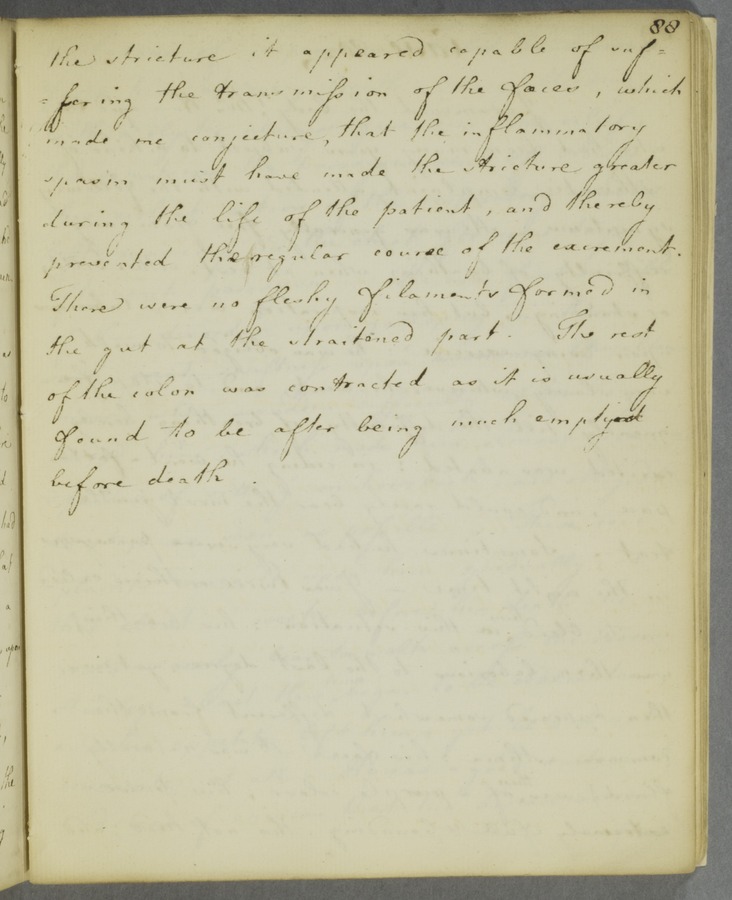 88
the stricture it appeared capable of suf=
=fering the transmission of the fæces, which
made me conjecture, that the inflammatory
spasm must have made the stricture greater
during the life of the patient, and thereby
prevented the regular course of the excrement.
There were no fleshy filaments formed in
the gut at the straitened part. The rest
of the colon was contracted as it is usually
found to be after being much emptied
before death.